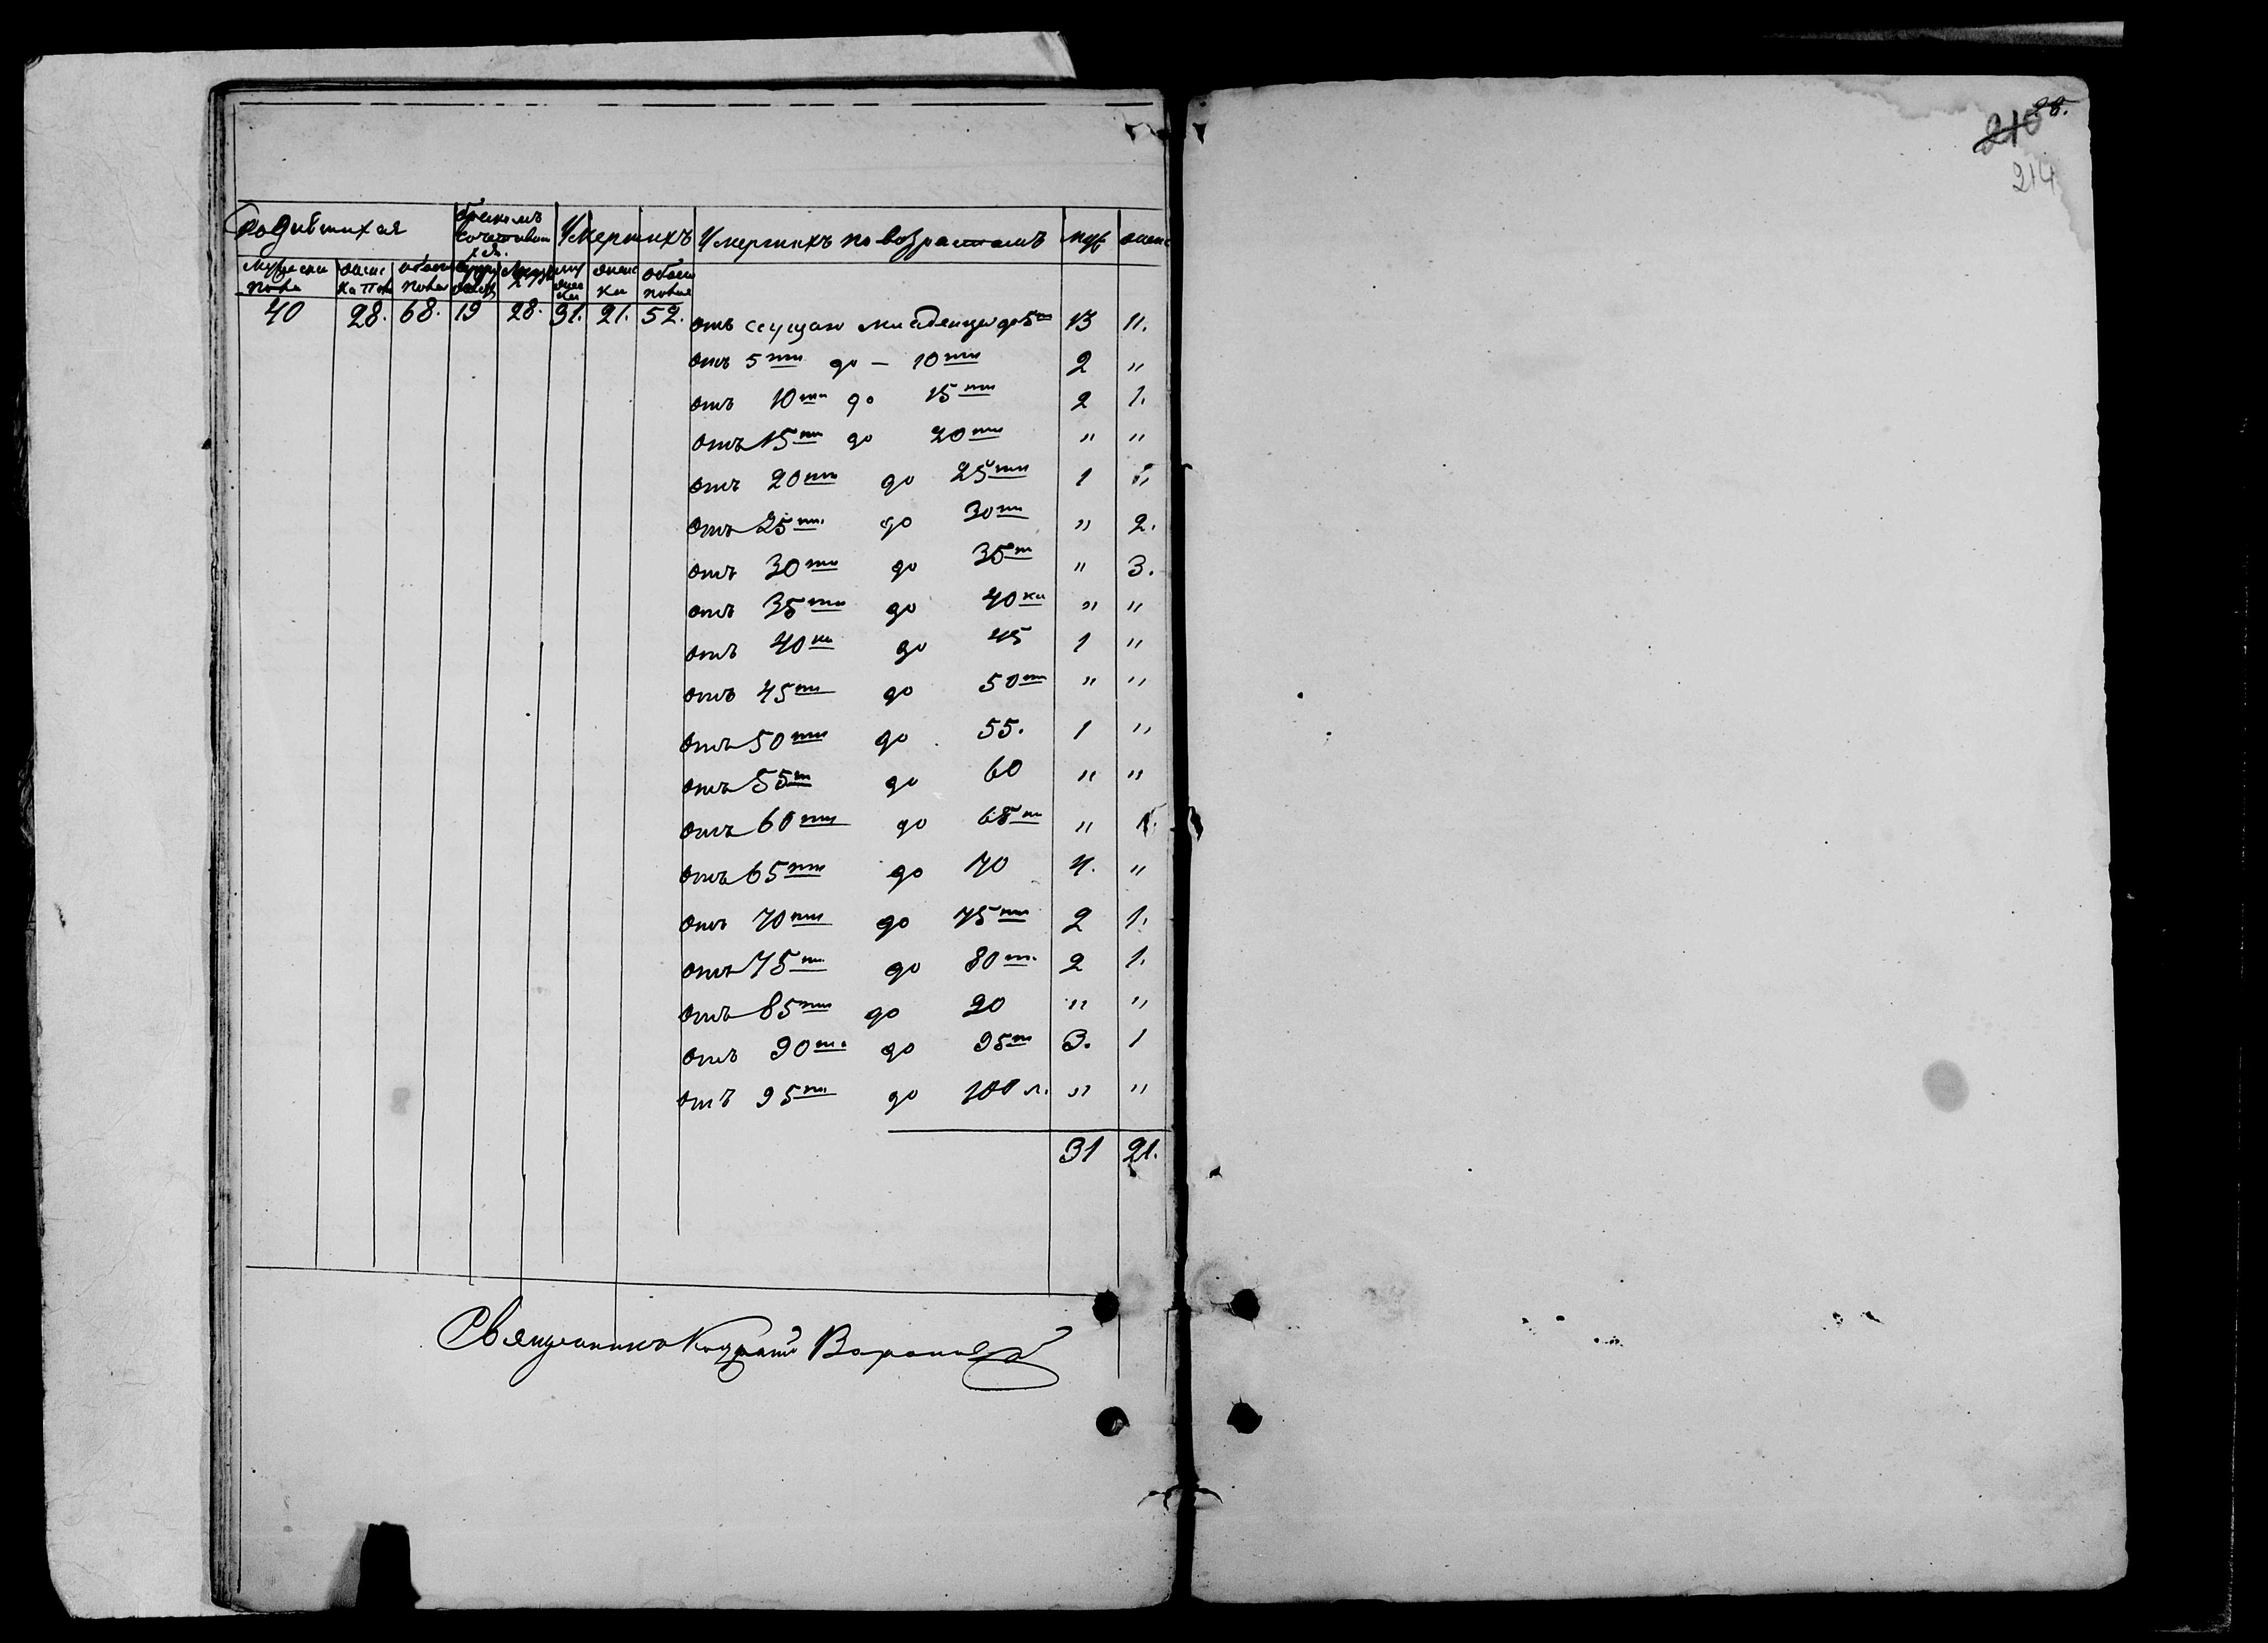 Родившихся
бракомъ
сочетавш
хся.
Умершихъ
Умершихъ по возрастамъ
муж
женс
мужеска
пола
женс
ка пол
обоего
пола
муж
ска
женс
ка
обоего
пола
40 28. 68. 19 28. 31. 21. 52.
отъ сущаго младенца до 5ти 13 11.
отъ 5ти до — 10ти 2 "
отъ 10ти до 15ти 2 1.
отъ 15ти до 20ти " "
отъ 20ти до 25ти 1 "
отъ 25ти до 30ти " 2.
отъ 30ти до 35ти " 3.
отъ 35ти до 40ка " "
отъ 40ка до 45 1 "
отъ 45ти до 50ти " "
отъ 50ти до 55. 1 "
отъ 55ти до 60 " "
отъ 60ти до 65ти " 1.
отъ 65ти до 70 4. "
отъ 70ти до 75ти 2 1.
отъ 75ти до 80ти 2 1.
отъ 85ти до 90 " "
отъ 90то до 95ти 3. 1
отъ 95ти до 100 л. " "
31 21.
Священникъ
28.
210
214